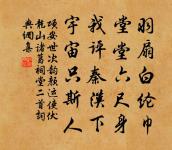 羽扇白纶巾
堂堂六尺身
我评秦漢下
宇宙只斯人
项安世次韵运使伏
龍山诸葛祠堂二首詞
典網集